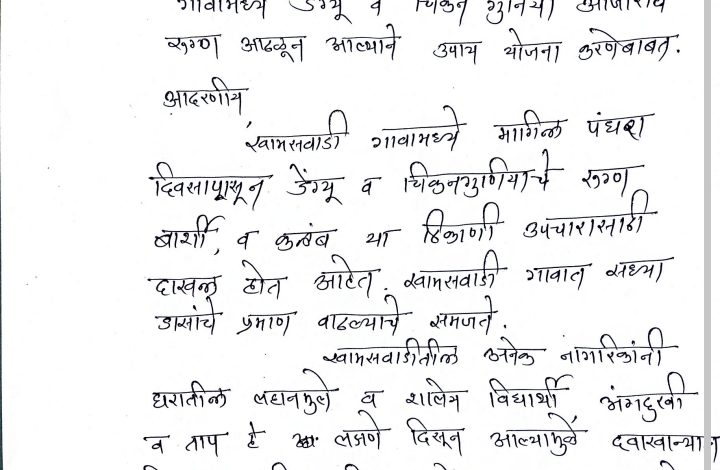 गावामध्ये डेंग्यू व चिकुन गुनिया आजाराचे
रुग्ण आढळून आल्याने उपाय योजना करणेबाबत.
आदरणीय,
खामसवाडी गावामध्ये मागिल पंधरा
दिवसापासून डेंग्यू व चिकुनगुणियाचे रुग्ण
बार्शी, व कळंब या ठिकाणी उपचारासाठी
दाखल होत आहेत. खामसवाडी गावात सध्या
डासांचे प्रमाण वाढल्याचे समजते.
खामसवाडीतील अनेक नागरिकांनी
घरातील लहानमुले व शालेय विद्यार्थी अंगदुखी
व ताप हे लक्षणे दिसून आल्यामुळे दवाखान्यात